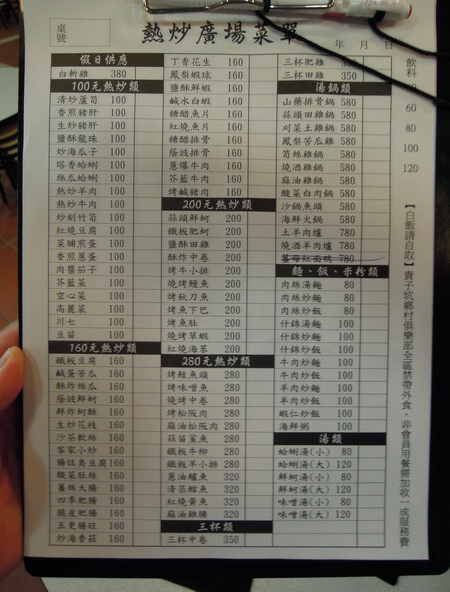 桌號
熱炒廣場菜單
年 月 日
假日供應
白斬雞 380
100元熱炒類
清炒蘆筍 100
香煎豬肝 100
生炒豬肝 100
鹽酥龍珠 100
炒海瓜子 100
塔香蛤蜊 100
絲瓜蛤蜊 100
熱炒羊肉 100
熱炒牛肉 100
炒劍竹筍 100
紅燒豆腐 100
菜脯煎蛋 100
香煎蔥蛋 100
肉醬茄子 100
芥藍菜 100
空心菜 100
高麗菜 100
川七 100
豆苗 100
160元熱炒類
鐵板豆腐 160
鹹蛋苦瓜 160
酥炸絲瓜 160
蔭豉鮮蚵 160
鮮炸蚵酥 160
生炒花枝 160
沙茶軟絲 160
客家小炒 160
腸旺臭豆腐 160
酸菜肚絲 160
薑絲大腸 160
四季肥腸 160
脆皮肥腸 160
五更腸旺 160
炒海香菇 160
丁香花生 160
鳳梨蝦球 160
鹽酥鮮蝦 160
鹹水白蝦 160
糖醋魚片 160
紅燒魚片 160
糖醋排骨 160
蔭豉排骨 160
蔥爆牛肉 160
芥藍牛肉 160
烤鹹豬肉 160
200元熱炒類
蒜頭鮮蚵 200
鐵板鮮蚵 200
鹽酥田雞 200
酥炸中卷 200
烤牛小排 200
燒烤鰻魚 200
烤秋刀魚 200
烤魚下巴 200
烤魚肚 200
燒烤草蝦 200
紅燒海蔘 200
280元熱炒類
烤鮭魚頭 280
烤味噌魚 280
燒烤中卷 280
烤松阪肉 280
麻油松阪肉 280
蒜苗鯊魚 280
鐵板牛柳 280
鐵板羊小排 280
蔥油鱸魚 320
清蒸鱈魚 320
紅燒黃魚 320
麻油雞腰 320
三杯類
三杯中卷 350
三杯肥雞
三杯田雞 350
湯鍋類
山藥排骨鍋 580
蒜頭田雞鍋 580
刈菜土雞鍋 580
鳳梨苦瓜雞 580
筍絲雞鍋 580
燒酒雞鍋 580
麻油雞鍋 580
酸菜白肉鍋 580
沙鍋魚頭 580
海鮮火鍋 580
土羊肉爐 780
燒酒羊肉爐 780
薑母紅面鴨 780
麵、飯、米粉類
肉絲湯麵 80
肉絲炒麵 80
肉絲炒飯 80
什錦湯麵 100
什錦炒麵 100
什錦炒飯 100
牛肉炒麵 100
牛肉炒飯 100
羊肉炒麵 100
羊肉炒飯 100
蝦仁炒飯 100
海鮮粥 100
湯類
蛤蜊湯(小) 80
蛤蜊湯(大) 120
鮮蚵湯(小) 80
鮮蚵湯(大) 120
味噌湯(小) 80
味噌湯(大) 120
飲料
60
80
100
120
【白飯請自取】貴子坑鄉村俱樂部全區禁帶外食，非會員用餐需加收一成服務費